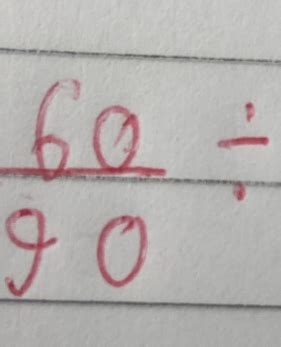 60 ÷
90